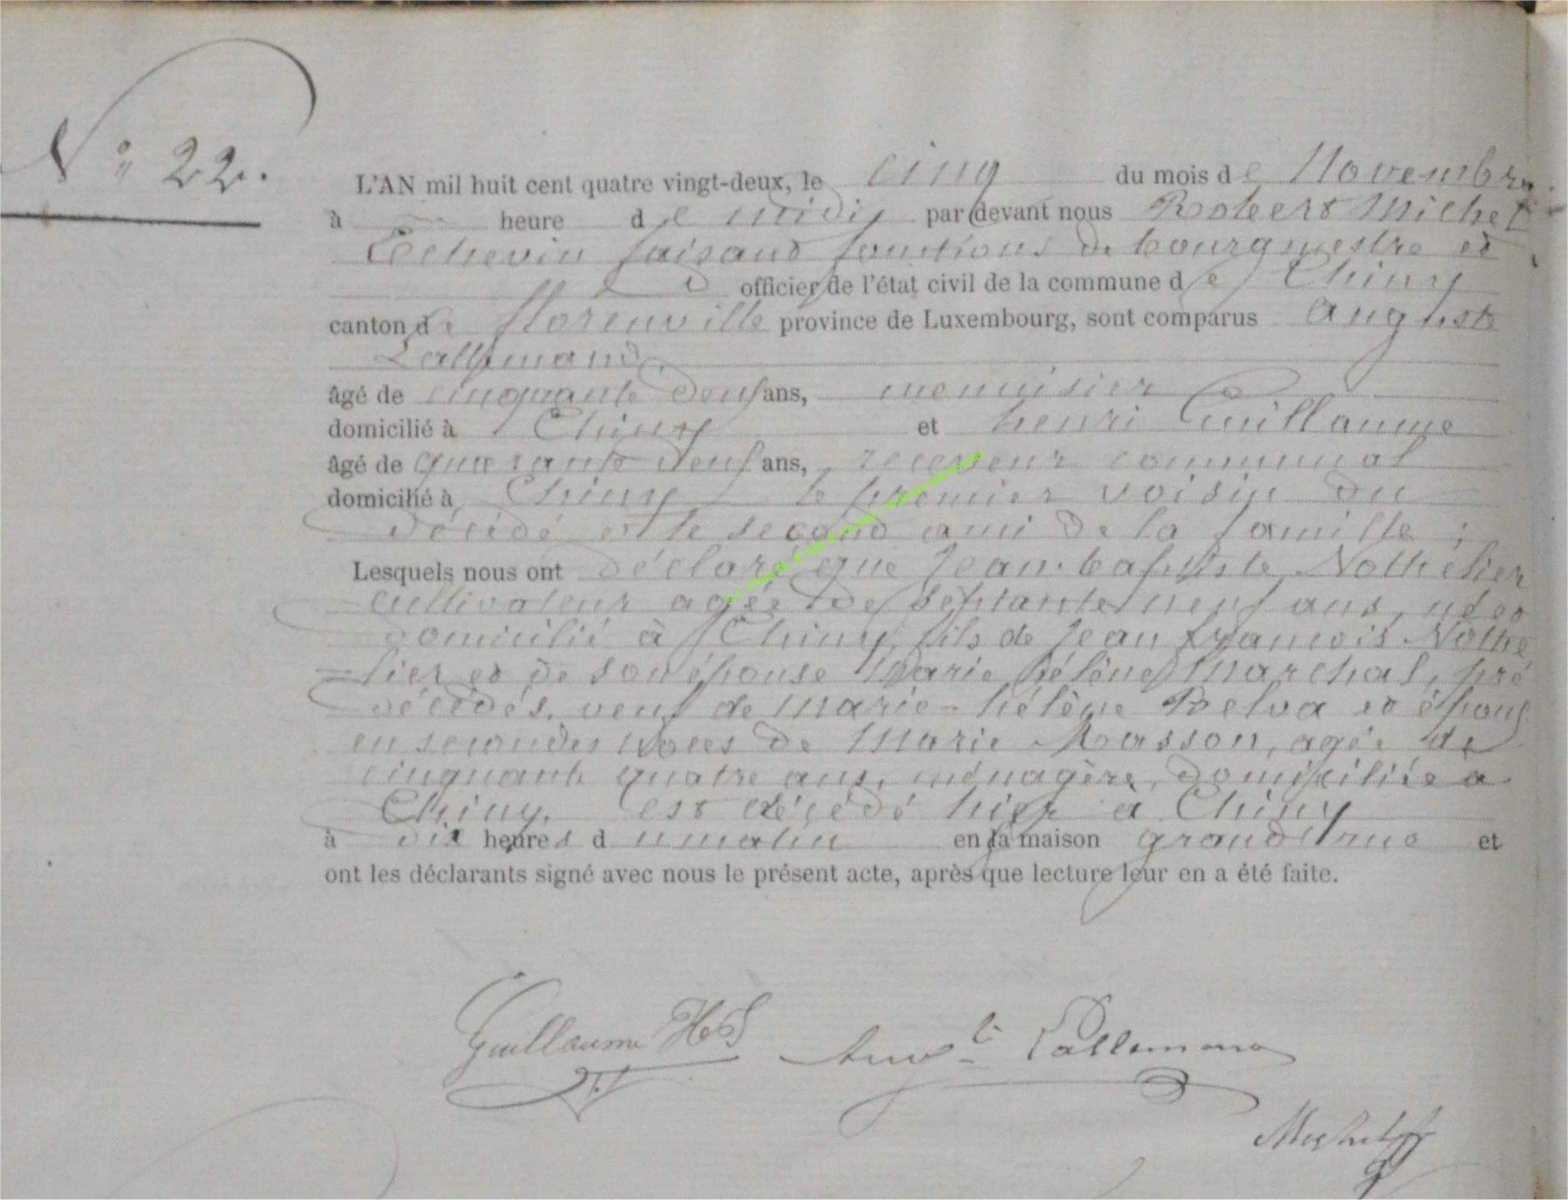 N° 22.
L'AN mil huit cent quatre vingt-deux, le cinq du mois de Novembre
à heure de midi, par devant nous Robert Michel
Echevin faisant fonctions de bourgmestre et
officier de l'état civil de la commune de Chiny
canton de florenville province de Luxembourg, sont comparus Auguste
Lallemand,
âgé de cinquante deux ans, menuisier
domicilié à Chiny et henri Guillaume
âgé de quarante neuf ans, receveur communal
domicilié à Chiny le premier voisin du
décédé et le second ami de la famille ;
Lesquels nous ont déclaré que Jean-baptiste Nothelier
cultivateur agée de septante neuf ans, né et
domicilié à Chiny, fils de Jean françois Nothe
=lier et de son épouse Marie hélène Marchal, pré
décédés, veuf de Marie-hélène Belva et époux
en secondes noces de Marie Masson, agée de
cinquante quatre ans, ménagère, domiciliée à
Chiny. est décédé hier à Chiny
à dix heures du matin en sa maison grand'rue et
ont les déclarants signé avec nous le présent acte, après que lecture leur en a été faite.
Guillaume Lallemand
Michel